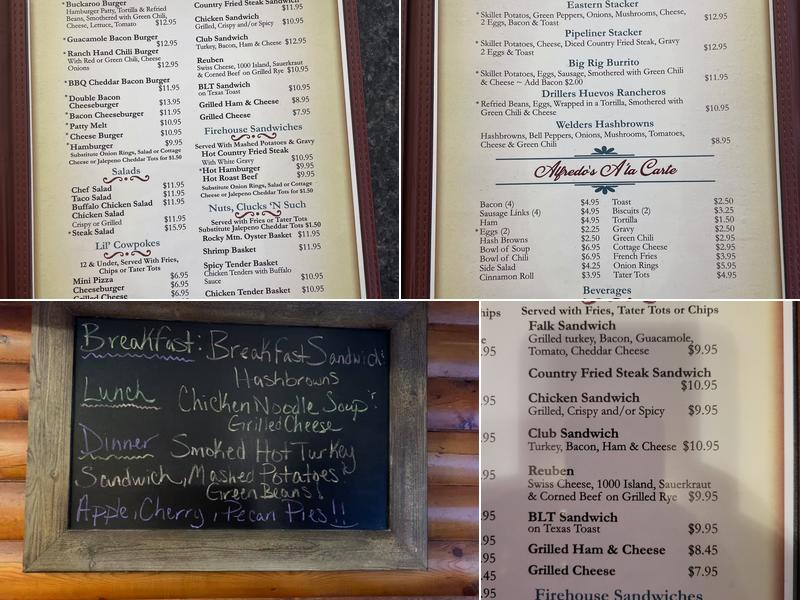 *Buckaroo Burger
Hamburger Patty, Tortilla & Refried
Beans, Smothered with Green Chili,
Cheese, Lettuce, Tomato $12.95
*Guacamole Bacon Burger
$12.95
*Ranch Hand Chili Burger
With Red or Green Chili, Cheese
Onions $12.95
*BBQ Cheddar Bacon Burger
$11.95
*Double Bacon
Cheeseburger $13.95
*Bacon Cheeseburger $11.95
*Patty Melt $10.95
*Cheese Burger $10.95
*Hamburger $9.95
Substitute Onion Rings, Salad or Cottage
Cheese or Jalepeno Cheddar Tots for $1.50
Salads
Chef Salad $11.95
Taco Salad $11.95
Buffalo Chicken Salad $11.95
Chicken Salad
Crispy or Grilled $11.95
*Steak Salad $15.95
Lil' Cowpokes
12 & Under, Served With Fries,
Chips or Tater Tots
Mini Pizza $6.95
Cheeseburger $6.95
Grilled Cheese $6.95
Country Fried Steak Sandwich
$11.95
Chicken Sandwich
Grilled, Crispy and/or Spicy $10.95
Club Sandwich
Turkey, Bacon, Ham & Cheese $12.95
Reuben
Swiss Cheese, 1000 Island, Sauerkraut
& Corned Beef on Grilled Rye $10.95
BLT Sandwich
on Texas Toast $10.95
Grilled Ham & Cheese $8.95
Grilled Cheese $7.95
Firehouse Sandwiches
Served With Mashed Potatoes & Gravy
Hot Country Fried Steak
With White Gravy $10.95
*Hot Hamburger $9.95
Hot Roast Beef $9.95
Substitute Onion Rings, Salad or Cottage
Cheese or Jalepeno Cheddar Tots for $1.50
Nuts, Clucks 'N Such
Served with Fries or Tater Tots
Substitute Jalepeno Cheddar Tots $1.50
Rocky Mtn. Oyster Basket $11.95
Shrimp Basket $11.95
Spicy Tender Basket
Chicken Tenders with Buffalo
Sauce $10.95
Chicken Tender Basket $10.95
Eastern Stacker
*Skillet Potatoes, Green Peppers, Onions, Mushrooms, Cheese,
2 Eggs, Bacon & Toast $12.95
Pipeliner Stacker
*Skillet Potatoes, Cheese, Diced Country Fried Steak, Gravy
2 Eggs & Toast $12.95
Big Rig Burrito
*Skillet Potatoes, Eggs, Sausage, Smothered with Green Chili
& Cheese ~ Add Bacon $2.00 $11.95
Drillers Huevos Rancheros
*Refried Beans, Eggs, Wrapped in a Tortilla, Smothered with
Green Chili & Cheese $10.95
Welders Hashbrowns
Hashbrowns, Bell Peppers, Onions, Mushrooms, Tomatoes,
Cheese & Green Chili $8.95
Alfredo's A'la Carte
Bacon (4) $4.95
Sausage Links (4) $4.95
Ham $4.95
*Eggs (2) $2.25
Hash Browns $2.50
Bowl of Soup $6.95
Bowl of Chili $6.95
Side Salad $4.25
Cinnamon Roll $3.95
Toast $2.50
Biscuits (2) $3.25
Tortilla $1.50
Gravy $2.50
Green Chili $2.95
Cottage Cheese $2.95
French Fries $3.95
Onion Rings $5.95
Tater Tots $4.95
Beverages
Breakfast: Breakfast Sandwich
Hashbrowns
Lunch Chicken Noodle Soup
Grilled Cheese
Dinner Smoked Hot Turkey
Sandwich, Mashed Potatoes
Green Beans!
Apple, Cherry, Pecan Pies!!
hips
.95
.95
.95
.95
.95
.95
.45
.95
Served with Fries, Tater Tots or Chips
Falk Sandwich
Grilled turkey, Bacon, Guacamole,
Tomato, Cheddar Cheese $9.95
Country Fried Steak Sandwich
$10.95
Chicken Sandwich
Grilled, Crispy and/or Spicy $9.95
Club Sandwich
Turkey, Bacon, Ham & Cheese $10.95
Reuben
Swiss Cheese, 1000 Island, Sauerkraut
& Corned Beef on Grilled Rye $9.95
BLT Sandwich
on Texas Toast $9.95
Grilled Ham & Cheese $8.45
Grilled Cheese $7.95
Firehouse Sandwiches